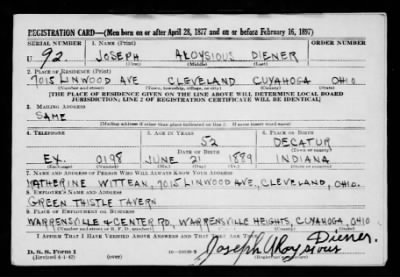 REGISTRATION CARD—(Men born on or after April 28, 1877 and on or before February 16, 1897)
SERIAL NUMBER 1. NAME (Print)
U 92. JOSEPH ALOYSIOUS DIENER
(First) (Middle) (Last)
2. PLACE OF RESIDENCE (Print)
7015 LINWOOD AVE CLEVELAND CUYAHOGA OHIO
(Number and street) (Town, township, village, or city) (County) (State)
[THE PLACE OF RESIDENCE GIVEN ON THE LINE ABOVE WILL DETERMINE LOCAL BOARD
JURISDICTION; LINE 2 OF REGISTRATION CERTIFICATE WILL BE IDENTICAL]
3. MAILING ADDRESS
SAME
[Mailing address if other than place indicated on line 2. If same insert word same]
4. TELEPHONE 5. AGE IN YEARS 6. PLACE OF BIRTH
52 DECATUR
DATE OF BIRTH (Town or county)
EX. 0198 JUNE 21 1889 INDIANA
(Exchange) (Number) (Mo.) (Day) (Yr.) (State or country)
7. NAME AND ADDRESS OF PERSON WHO WILL ALWAYS KNOW YOUR ADDRESS
KATHERINE WITTEAN, 7015 LINWOOD AVE, CLEVELAND, OHIO.
8. EMPLOYER'S NAME AND ADDRESS
GREEN THISTLE TAVERN
9. PLACE OF EMPLOYMENT OR BUSINESS
WARRENSVILLE & CENTER RD, WARRENSVILLE HEIGHTS, CUYAHOGA, OHIO
(Number and street or R. F. D. number) (Town) (County) (State)
I AFFIRM THAT I HAVE VERIFIED ABOVE ANSWERS AND THAT THEY ARE TRUE.
D. S. S. Form 1
(Revised 4-1-42) (over)
Joseph Aloysious Diener.